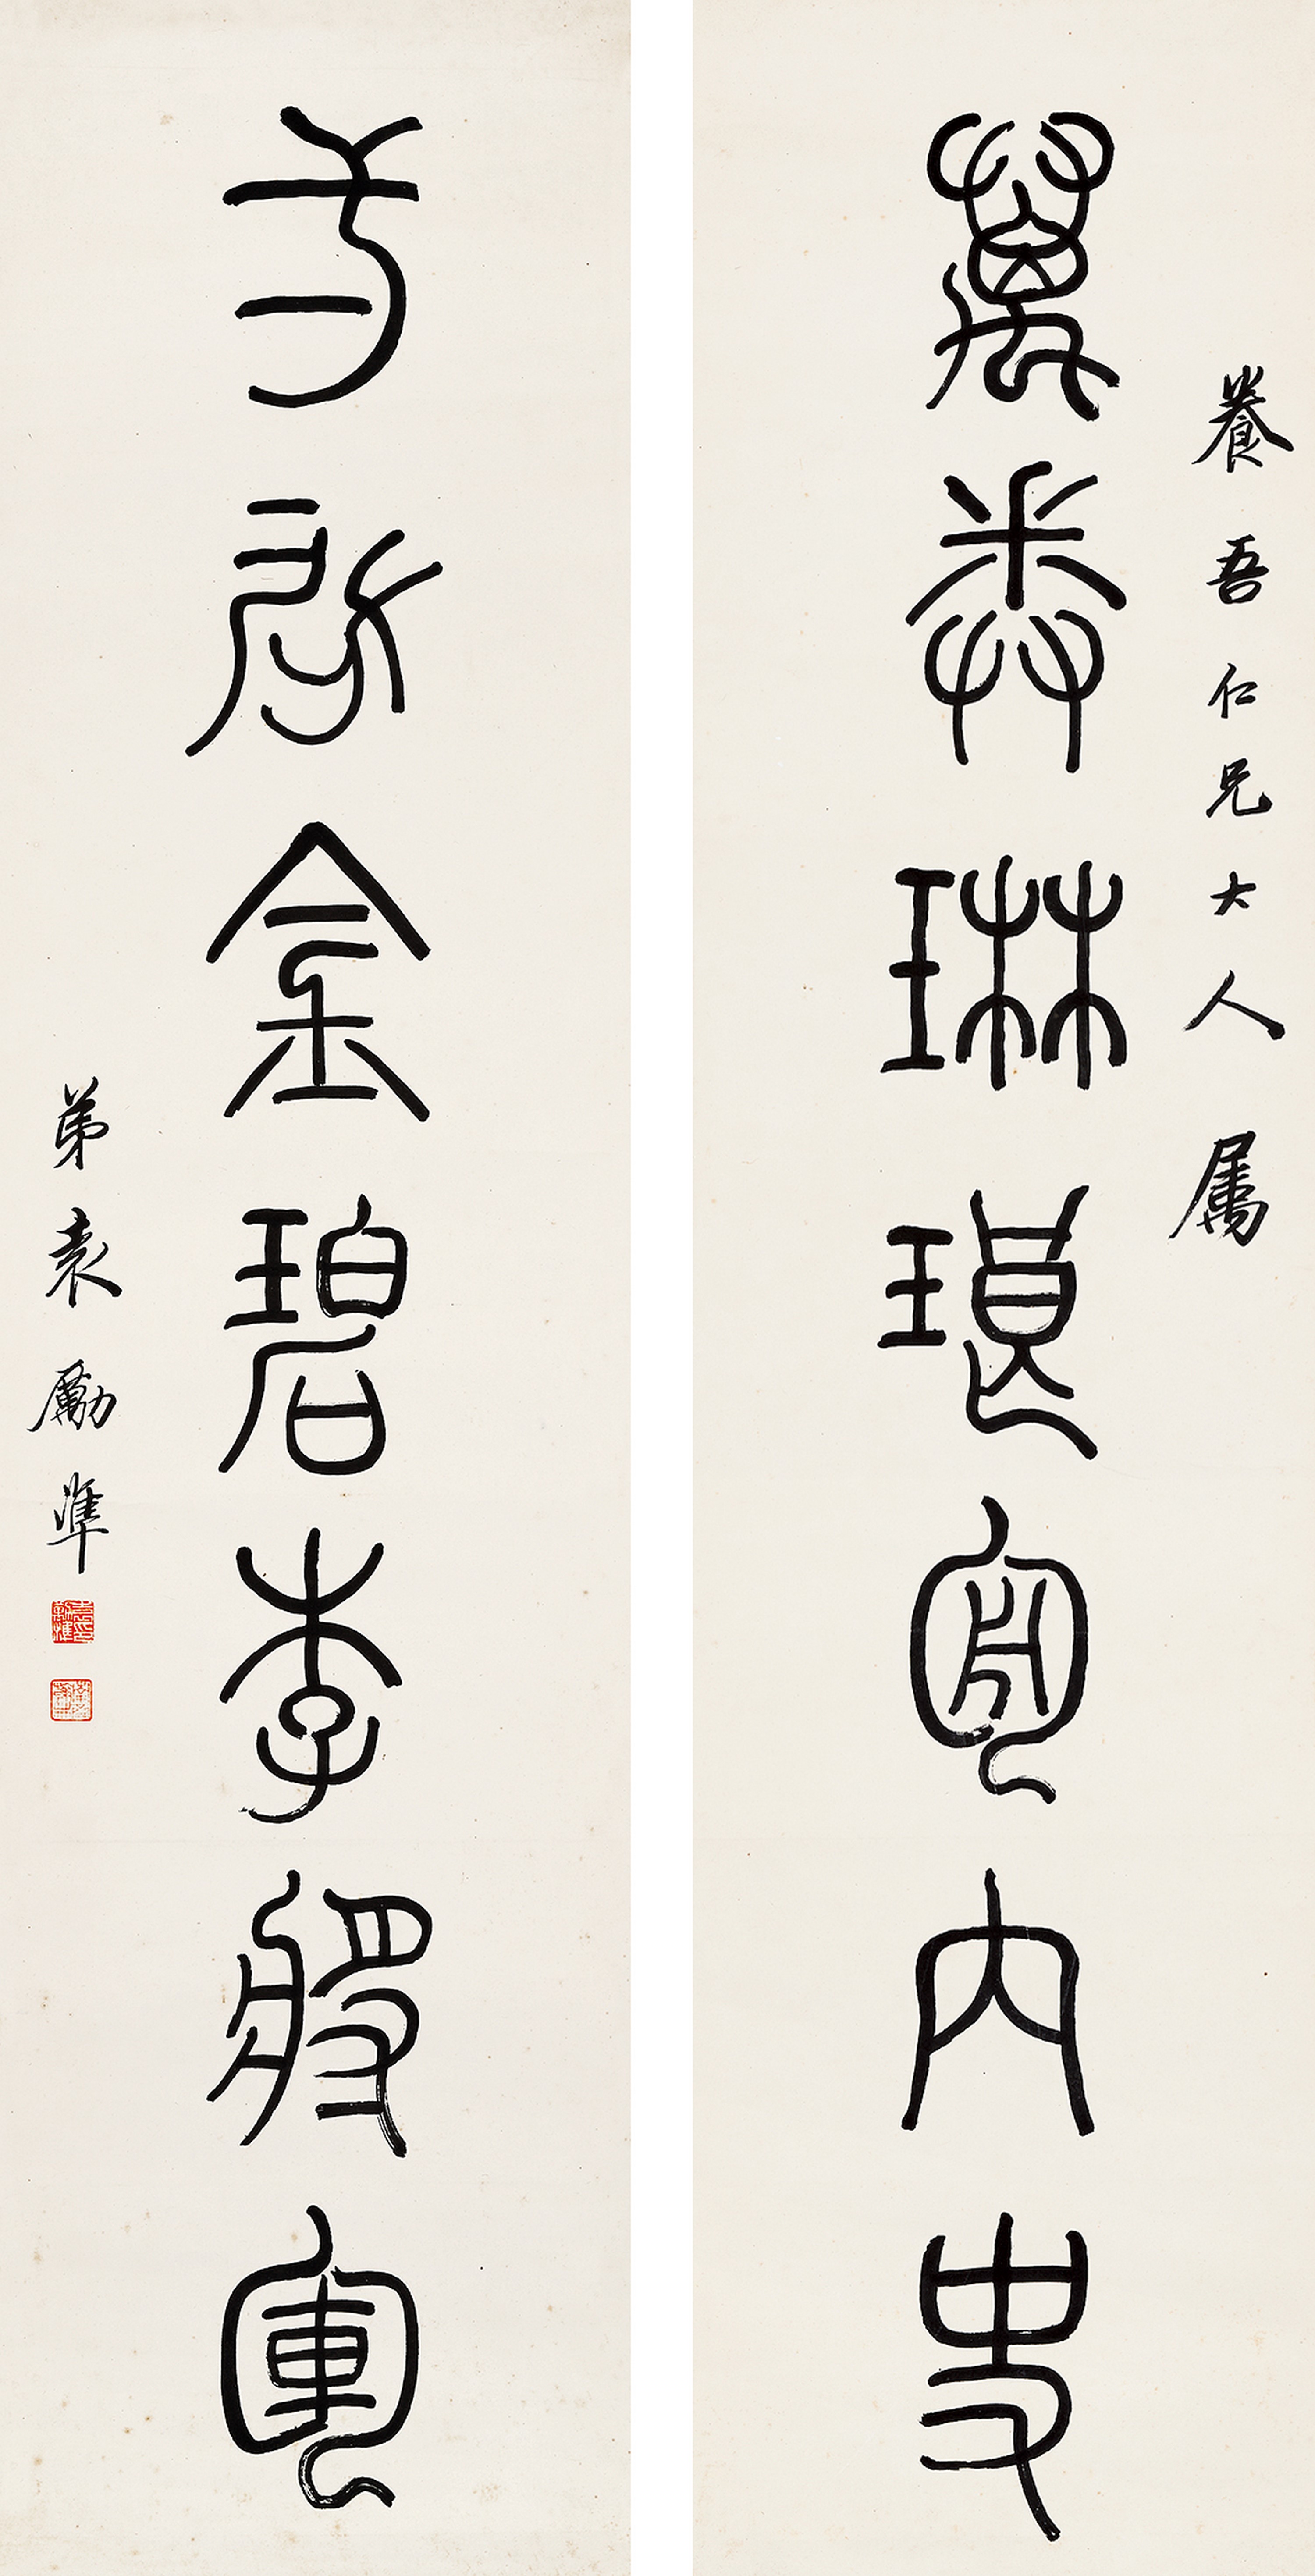 養吾仁兄大人屬
萬卷琳琅內史
金碧李軍
弟袁勵準